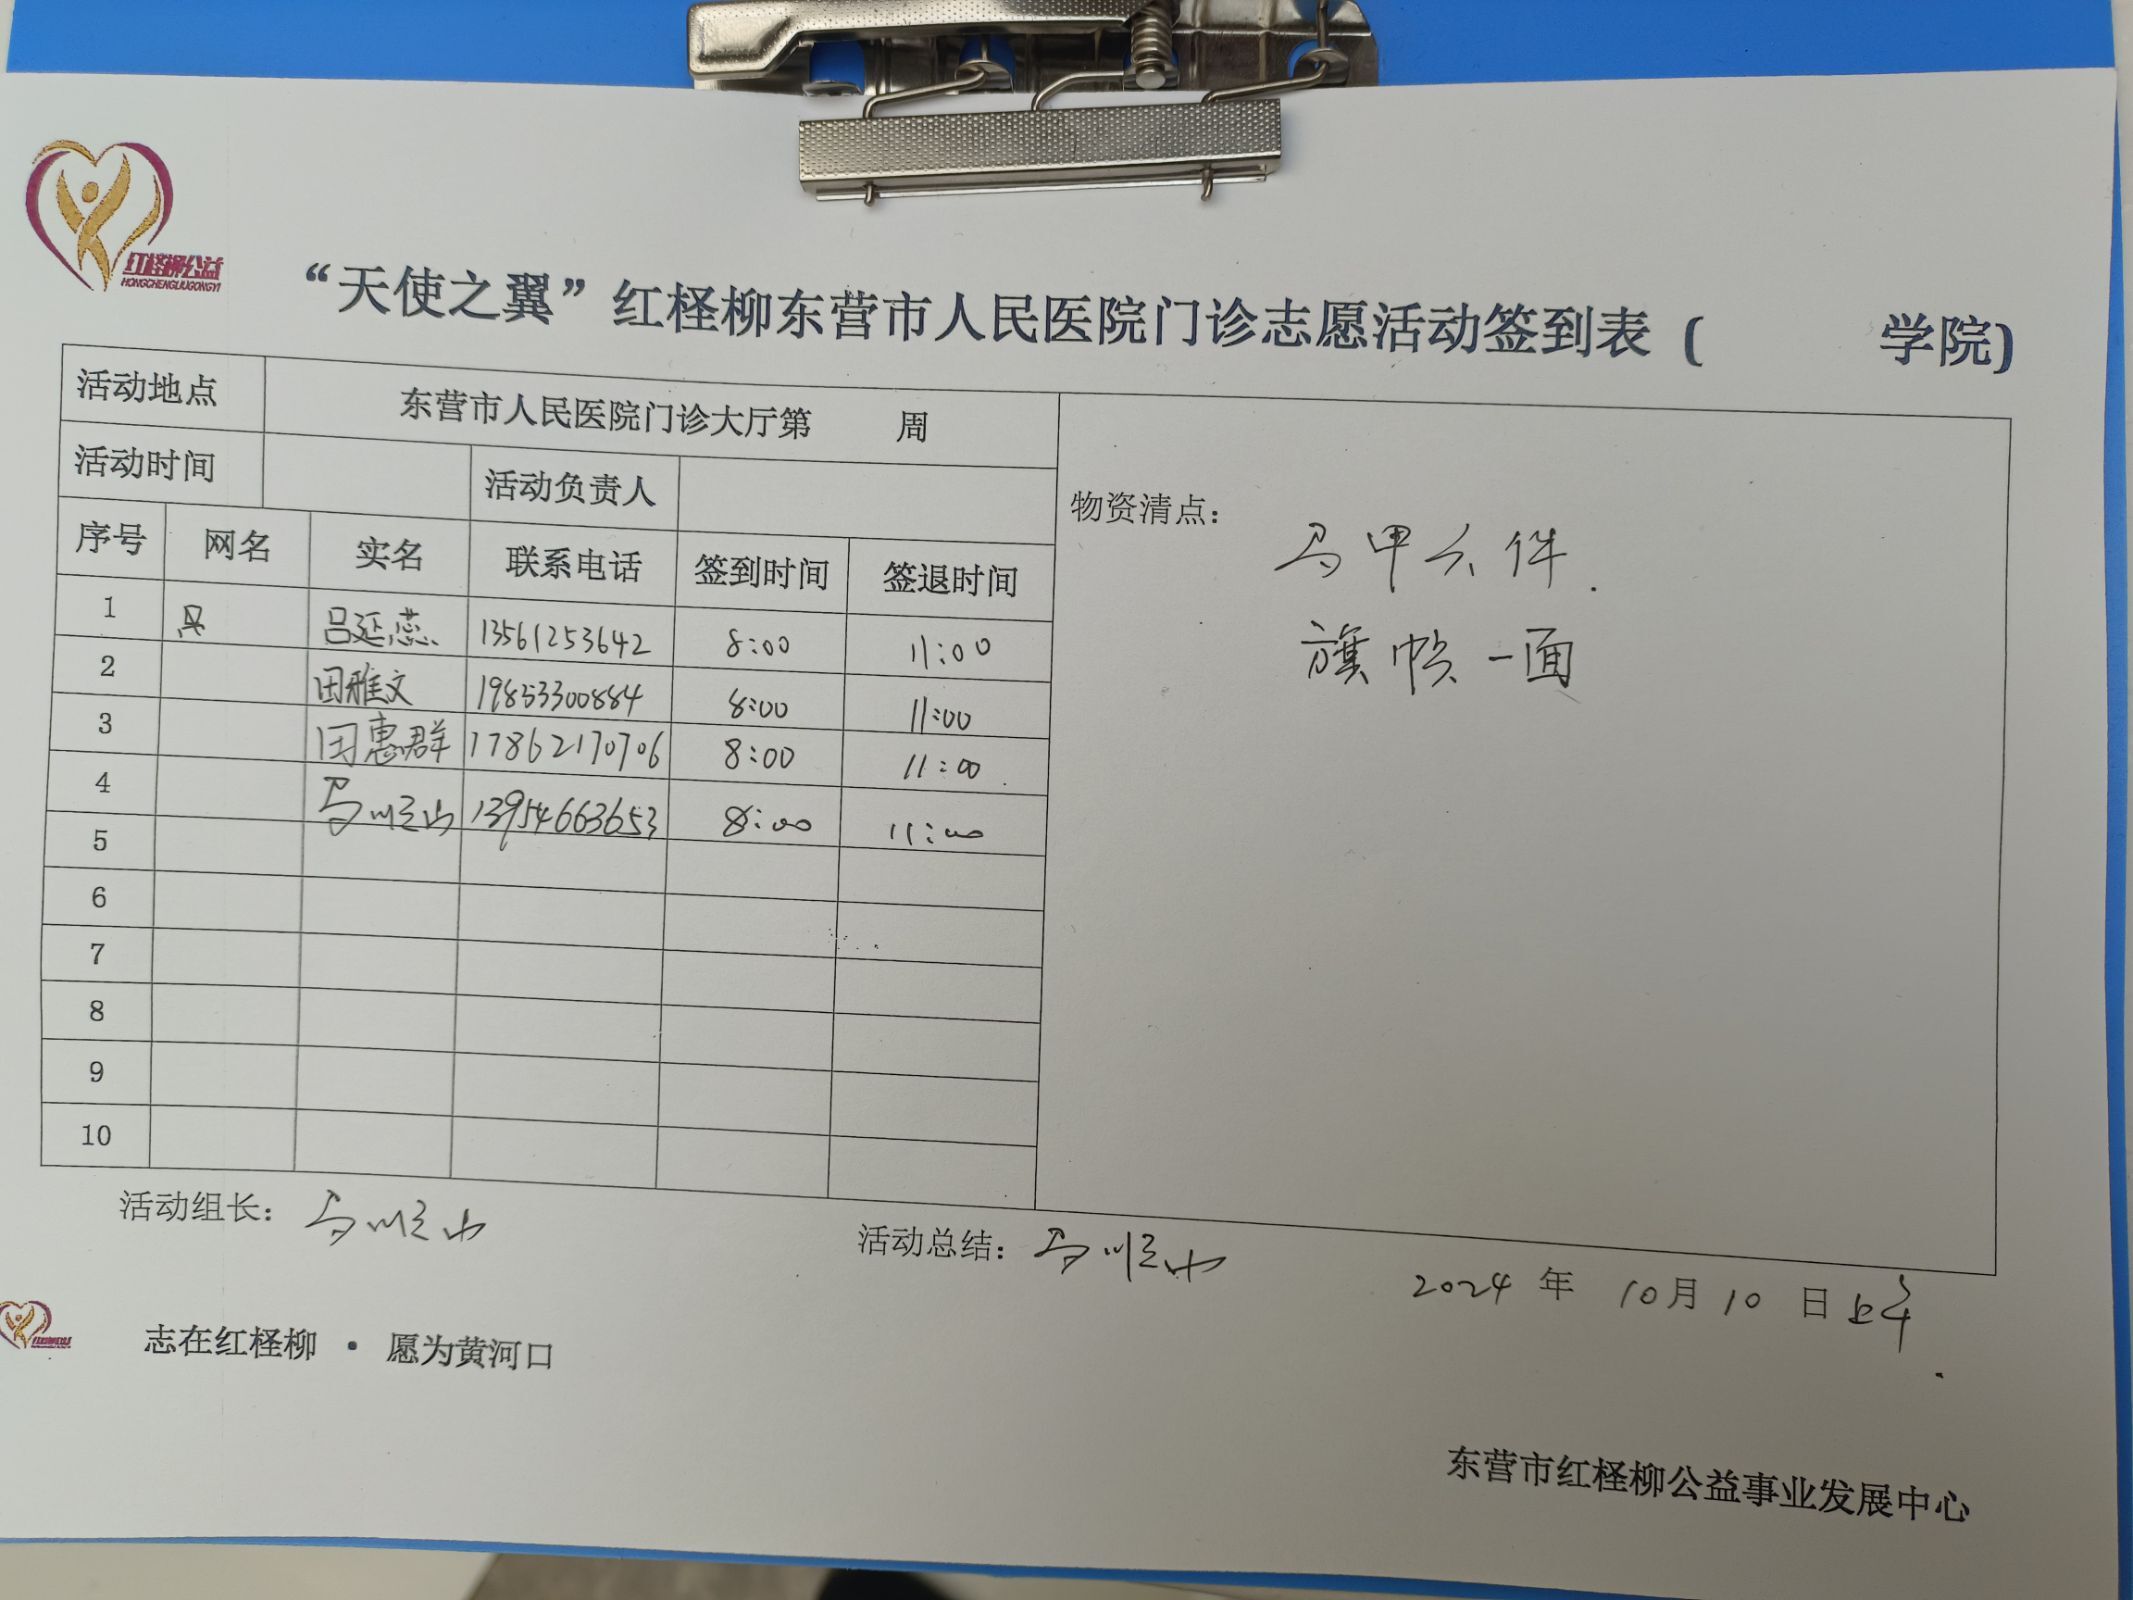 红柽柳公益
HONGCHENGLIUGONGYI
“天使之翼”红柽柳东营市人民医院门诊志愿活动签到表（ 学院)
活动地点 东营市人民医院门诊大厅第 周
活动时间 活动负责人
序号 网名 实名 联系电话 签到时间 签退时间
1 吕延蕊 13561253642 8:00 11:00
2 田雅文 19853300884 8:00 11:00
3 田惠群 17862170706 8:00 11:00
4 马顺山 13954663653 8:00 11:00
5
6
7
8
9
10
物资清点：
马甲六件.
旗帜一面
活动组长：马顺山
活动总结：马顺山
2024 年 10月10 日上午.
志在红柽柳 · 愿为黄河口
东营市红柽柳公益事业发展中心